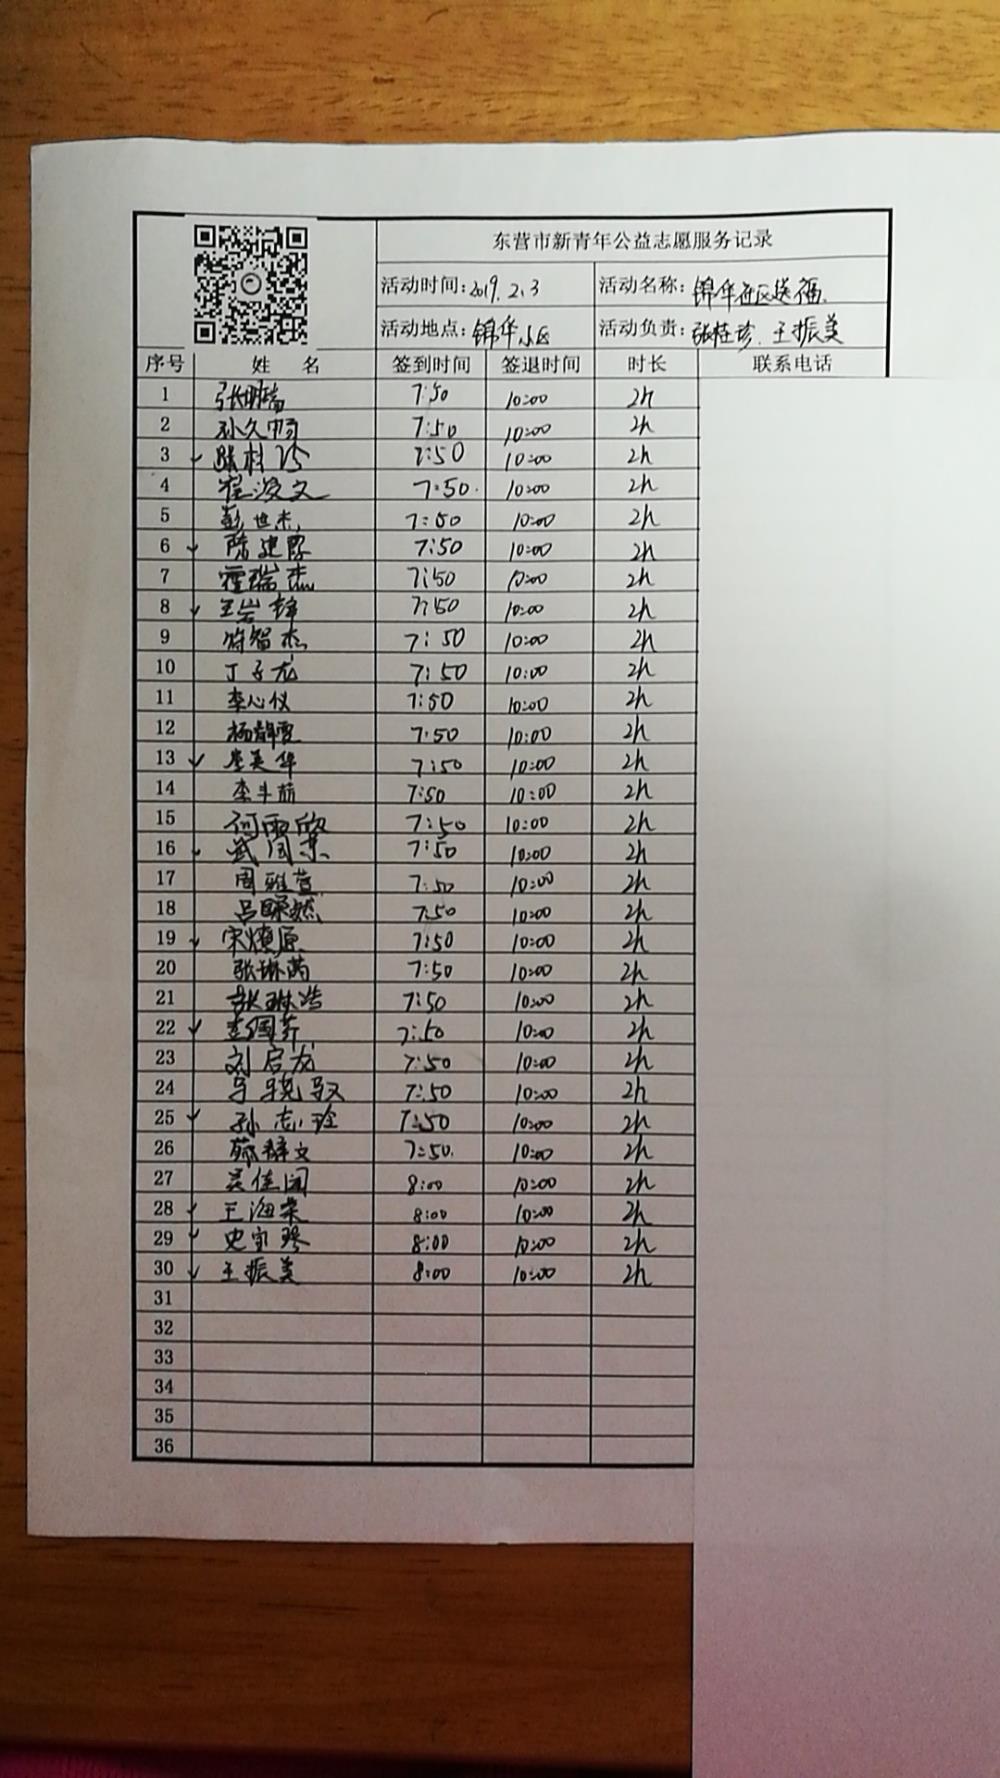 东营市新青年公益志愿服务记录
活动时间:2019.2.3 活动名称:锦华社区送福
活动地点:锦华小区 活动负责:张桂珍.王振美
序号 姓 名 签到时间 签退时间 时长 联系电话
1 7:50 10:00 2h
2 孙久畅 7:50 10:00 2h
3 ✓ 张桂珍 7:50 10:00 2h
4 崔浚文 7:50 10:00 2h
5 彭世杰 7:50 10:00 2h
6 ✓ 陈建 7:50 10:00 2h
7 霍瑞杰 7:50 10:00 2h
8 ✓ 王岩锋 7:50 10:00 2h
9 符智杰 7:50 10:00 2h
10 丁子龙 7:50 10:00 2h
11 李心仪 7:50 10:00 2h
12 杨静雯 7:50 10:00 2h
13 ✓ 李英华 7:50 10:00 2h
14 李半前 7:50 10:00 2h
15 何雨欣 7:50 10:00 2h
16 ✓ 武同荣 7:50 10:00 2h
17 周雅萱 7:50 10:00 2h
18 吕 然 7:50 10:00 2h
19 ✓ 宋燎原 7:50 10:00 2h
20 张琳茜 7:50 10:00 2h
21 张琳浩 7:50 10:00 2h
22 ✓ 7:50 10:00 2h
23 刘启龙 7:50 10:00 2h
24 马骁驭 7:50 10:00 2h
25 ✓ 孙志玲 7:50 10:00 2h
26 7:50 10:00 2h
27 吴佳闻 8:00 10:00 2h
28 ✓ 王海荣 8:00 10:00 2h
29 ✓ 史宝琴 8:00 10:00 2h
30 ✓ 王振美 8:00 10:00 2h
31
32
33
34
35
36